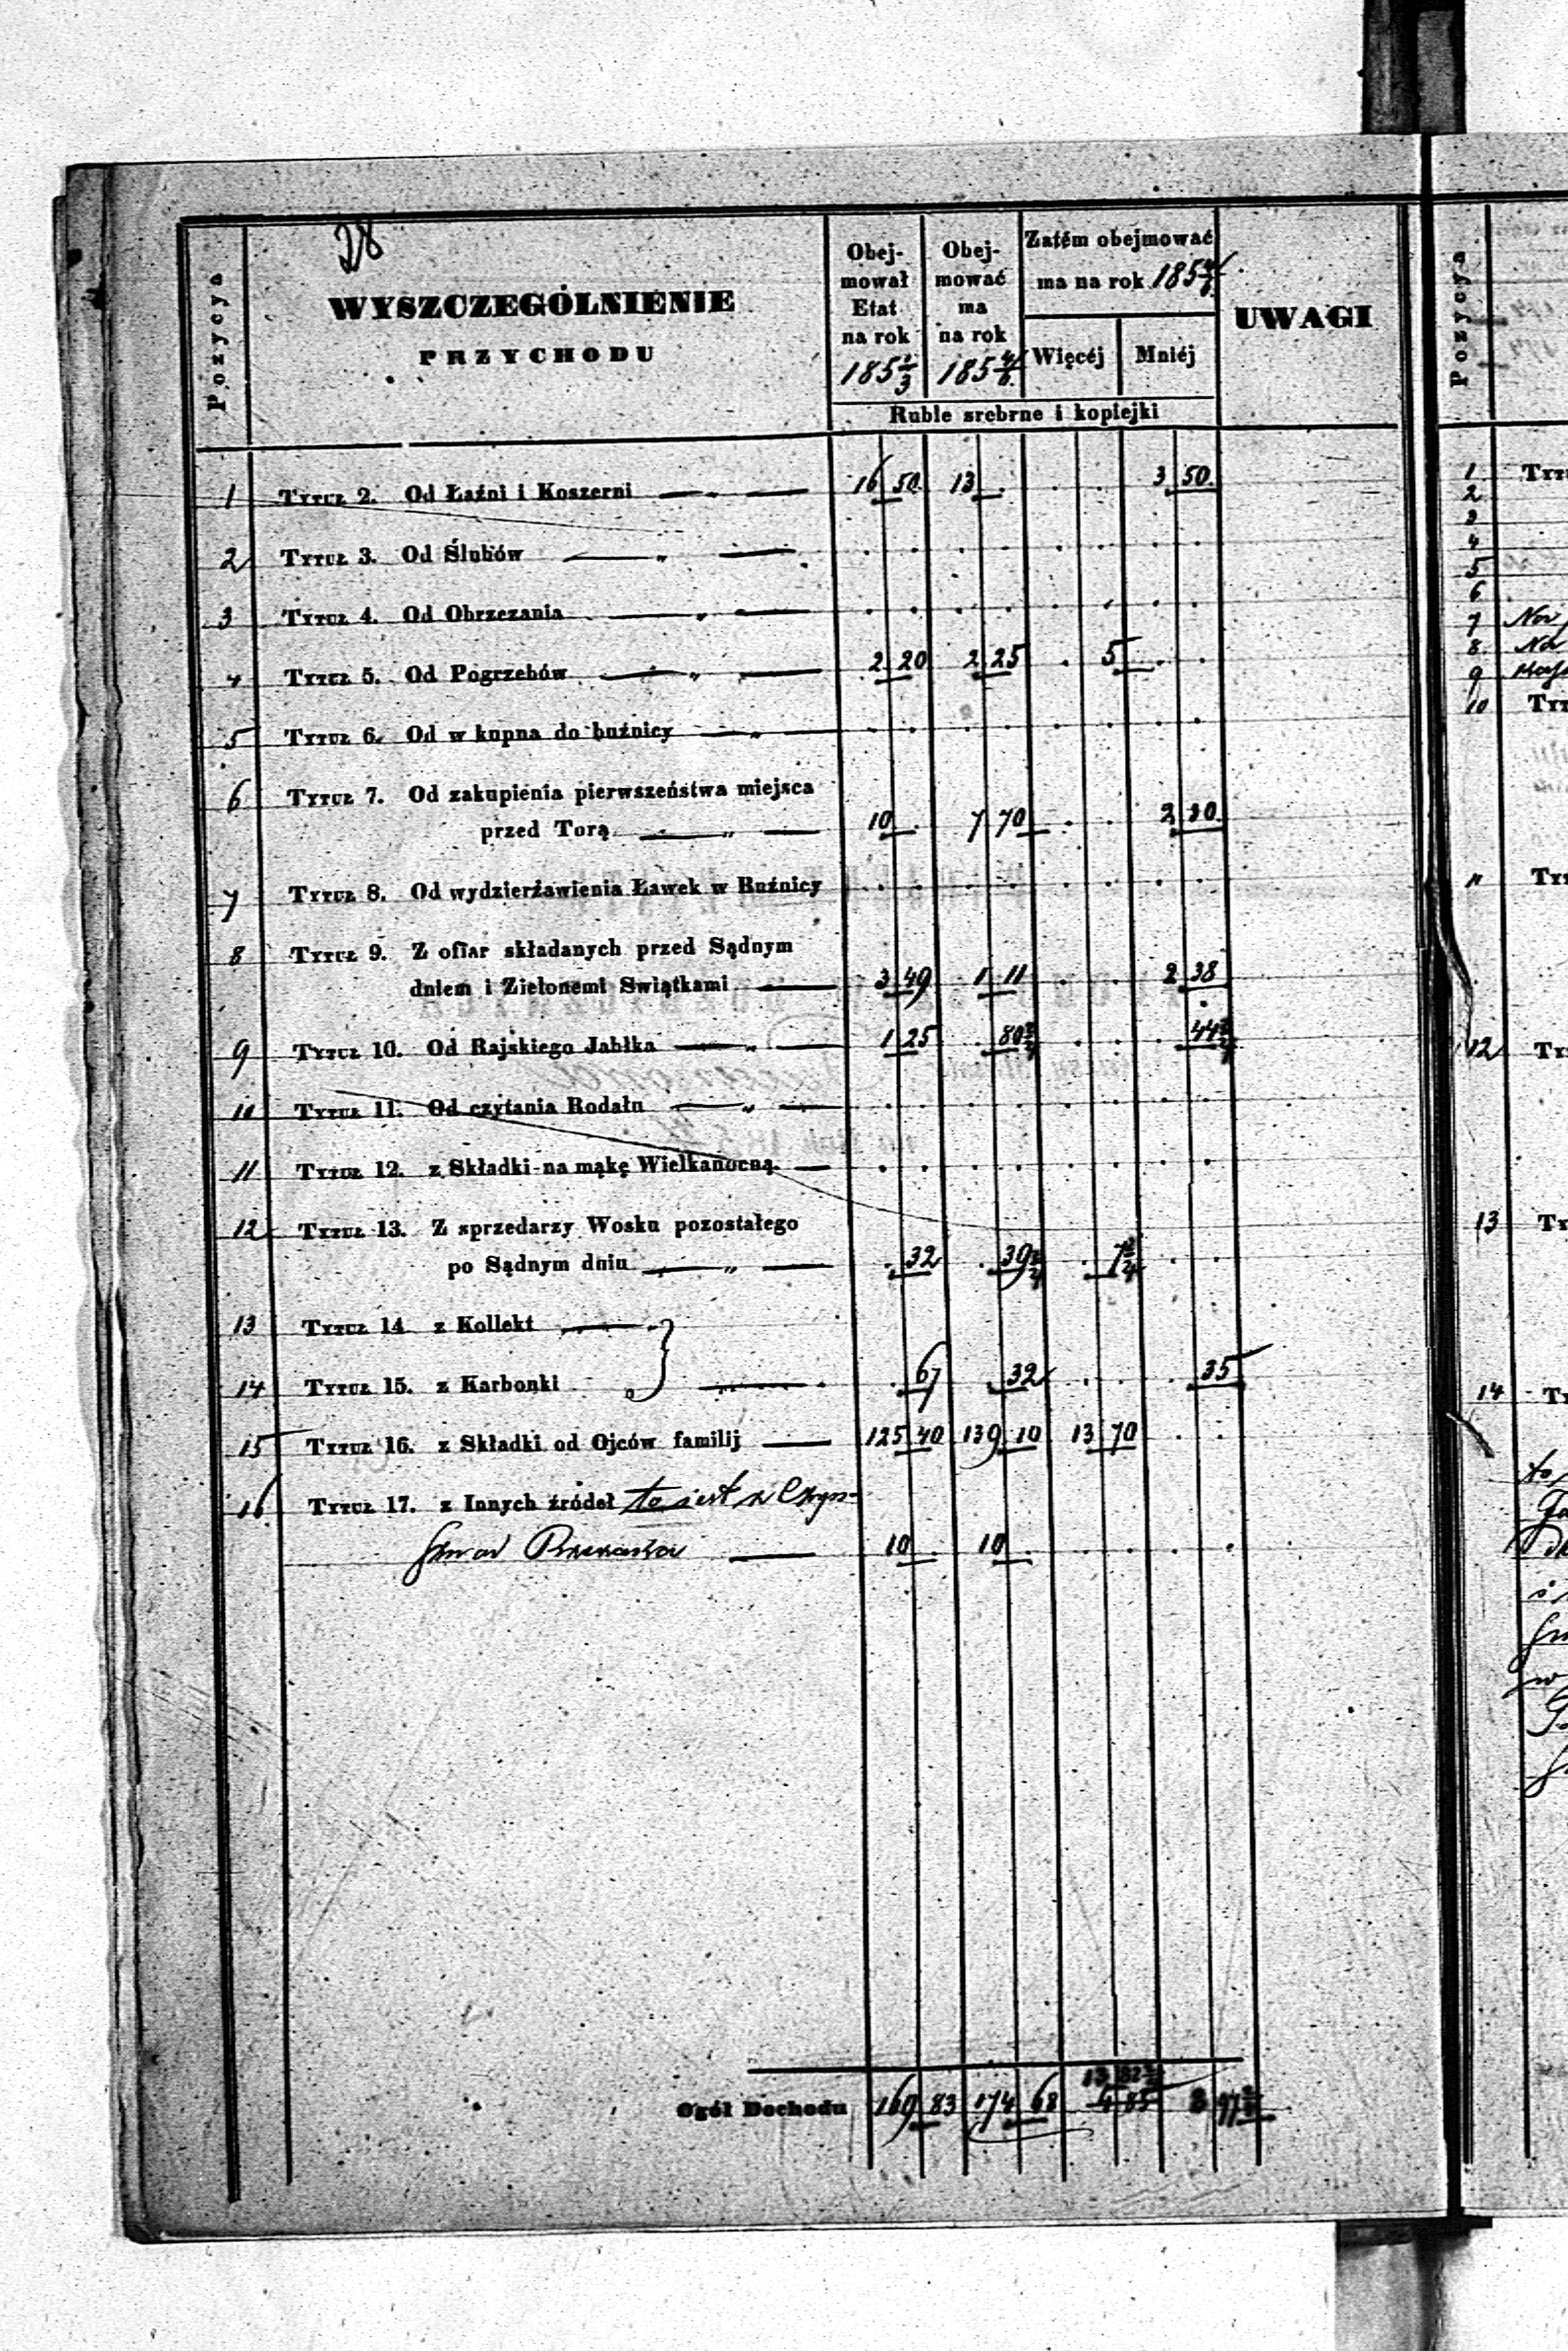 28
Pozycya
WYSZCZEGÓLNIENIE
PRZYCHODU
Obej-
mował
Etat
na rok
185 2/3
Obej-
mować
ma
na rok
185 4/6
Zatém obejmować
ma na rok 185 4/6
Więcéj Mniéj
UWAGI
Ruble srebrne i kopiejki
1 Tytuł 2. Od Łaźni i Koszerni 16 50 13 . . . 3 50
2 Tytuł 3. Od Ślubów
3 Tytuł 4. Od Obrzezania
4 Tytuł 5. Od Pogrzebów 2 20 2 25 . 5 . .
5 Tytuł 6. Od w kupna do buźnicy
6 Tytuł 7. Od zakupienia pierwszeństwa miejsca
przed Torą 10 . 7 70 . . 2 30
7 Tytuł 8. Od wydzierżawienia Ławek w Buźnicy
8 Tytuł 9. Z ofiar składanych przed Sądnym
dniem i Zielonemi Swiątkami 3 49 1 11 . . 2 38
9 Tytuł 10. Od Rajskiego Jabłka 1 25 . 80 3/4 . . . 44 2/4
10 Tytuł 11. Od czytania Rodału
11 Tytuł 12. z Składki na mąkę Wielkanocną
12 Tytuł 13. Z sprzedarzy Wosku pozostałego
po Sądnym dniu . 32 . 39 2/4 . 7 2/4 . .
13 Tytuł 14. z Kollekt
14 Tytuł 15. z Karbonki . 67 . 32 . . . 35
15 Tytuł 16. z Składki od Ojców familij 125 40 139 10 13 70 . .
16 Tytuł 17. z Innych źródeł to jest z Czyn-
10 . 10 . . . . .
Ogół Dochodu 169 83 174 68 4 85
Pozycya
1 Tyt
2
3
4
5
6
7
8
9
10 Ty
11 Ty
12 Ty
13 Ty
14 Ty